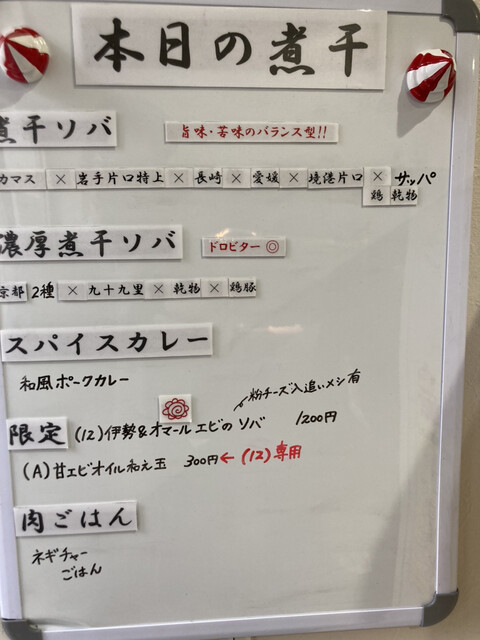 本日の煮干
煮干ソバ 旨味・苦味のバランス型!!
カマス × 岩手片口特上 × 長崎 × 愛媛 × 境港片口 × サッパ
鶏 乾物
濃厚煮干ソバ ドロビター◎
京都 2種 × 九十九里 × 乾物 × 鶏豚
スパイスカレー
和風ポークカレー
粉チーズ入追いメシ有
限定 (12)伊勢&オマールエビのソバ 1200円
(A)甘エビオイル和え玉 300円←(12)専用
肉ごはん
ネギチャー
ごはん